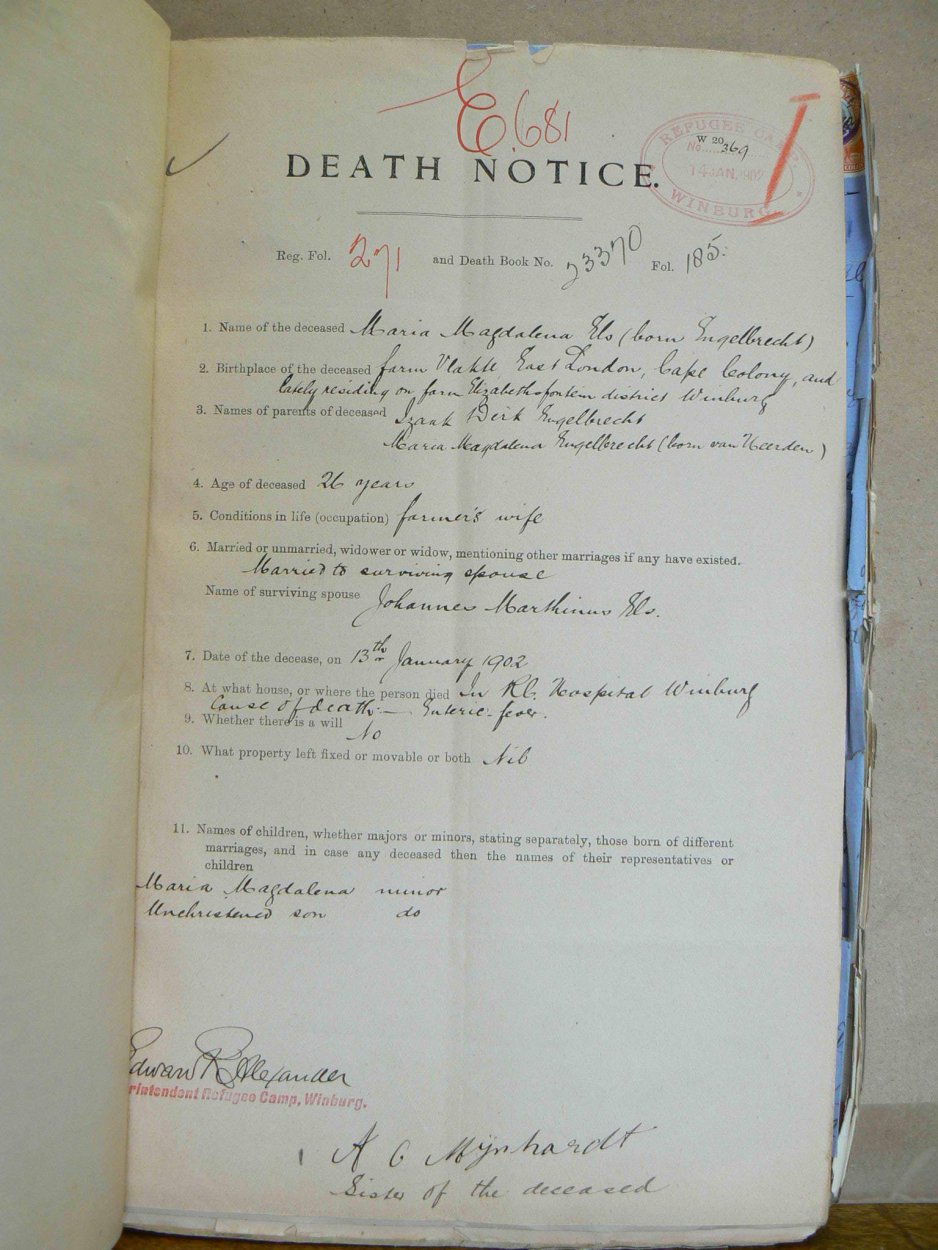 E.681
REFUGEE CAMP.
W 20
No. 369
14 JAN. 1902
WINBURG
DEATH NOTICE.
Reg. Fol. 271 and Death Book No. 23370 Fol. 185.
1. Name of the deceased Maria Magdalena Els (born Engelbrecht)
2. Birthplace of the deceased farm Vlakte East London, Cape Colony, and
lately residing on farm Elizabethsfontein district Winburg
3. Names of parents of deceased Izaak Dirk Engelbrecht
Maria Magdalena Engelbrecht (born van Heerden)
4. Age of deceased 26 years
5. Conditions in life (occupation) farmer's wife
6. Married or unmarried, widower or widow, mentioning other marriages if any have existed.
Married to surviving spouse
Name of surviving spouse Johannes Marthinus Els.
7. Date of the decease, on 13th January 1902
8. At what house, or where the person died In R.C. Hospital Winburg
Cause of death:— Enteric fever.
9. Whether there is a will No
10. What property left fixed or movable or both Nil
11. Names of children, whether majors or minors, stating separately, those born of different
marriages, and in case any deceased then the names of their representatives or
children
Maria Magdalena minor
Unchristened son do
Edward R Alexander
rintendent Refugee Camp, Winburg.
A C Mijnhardt
Sister of the deceased